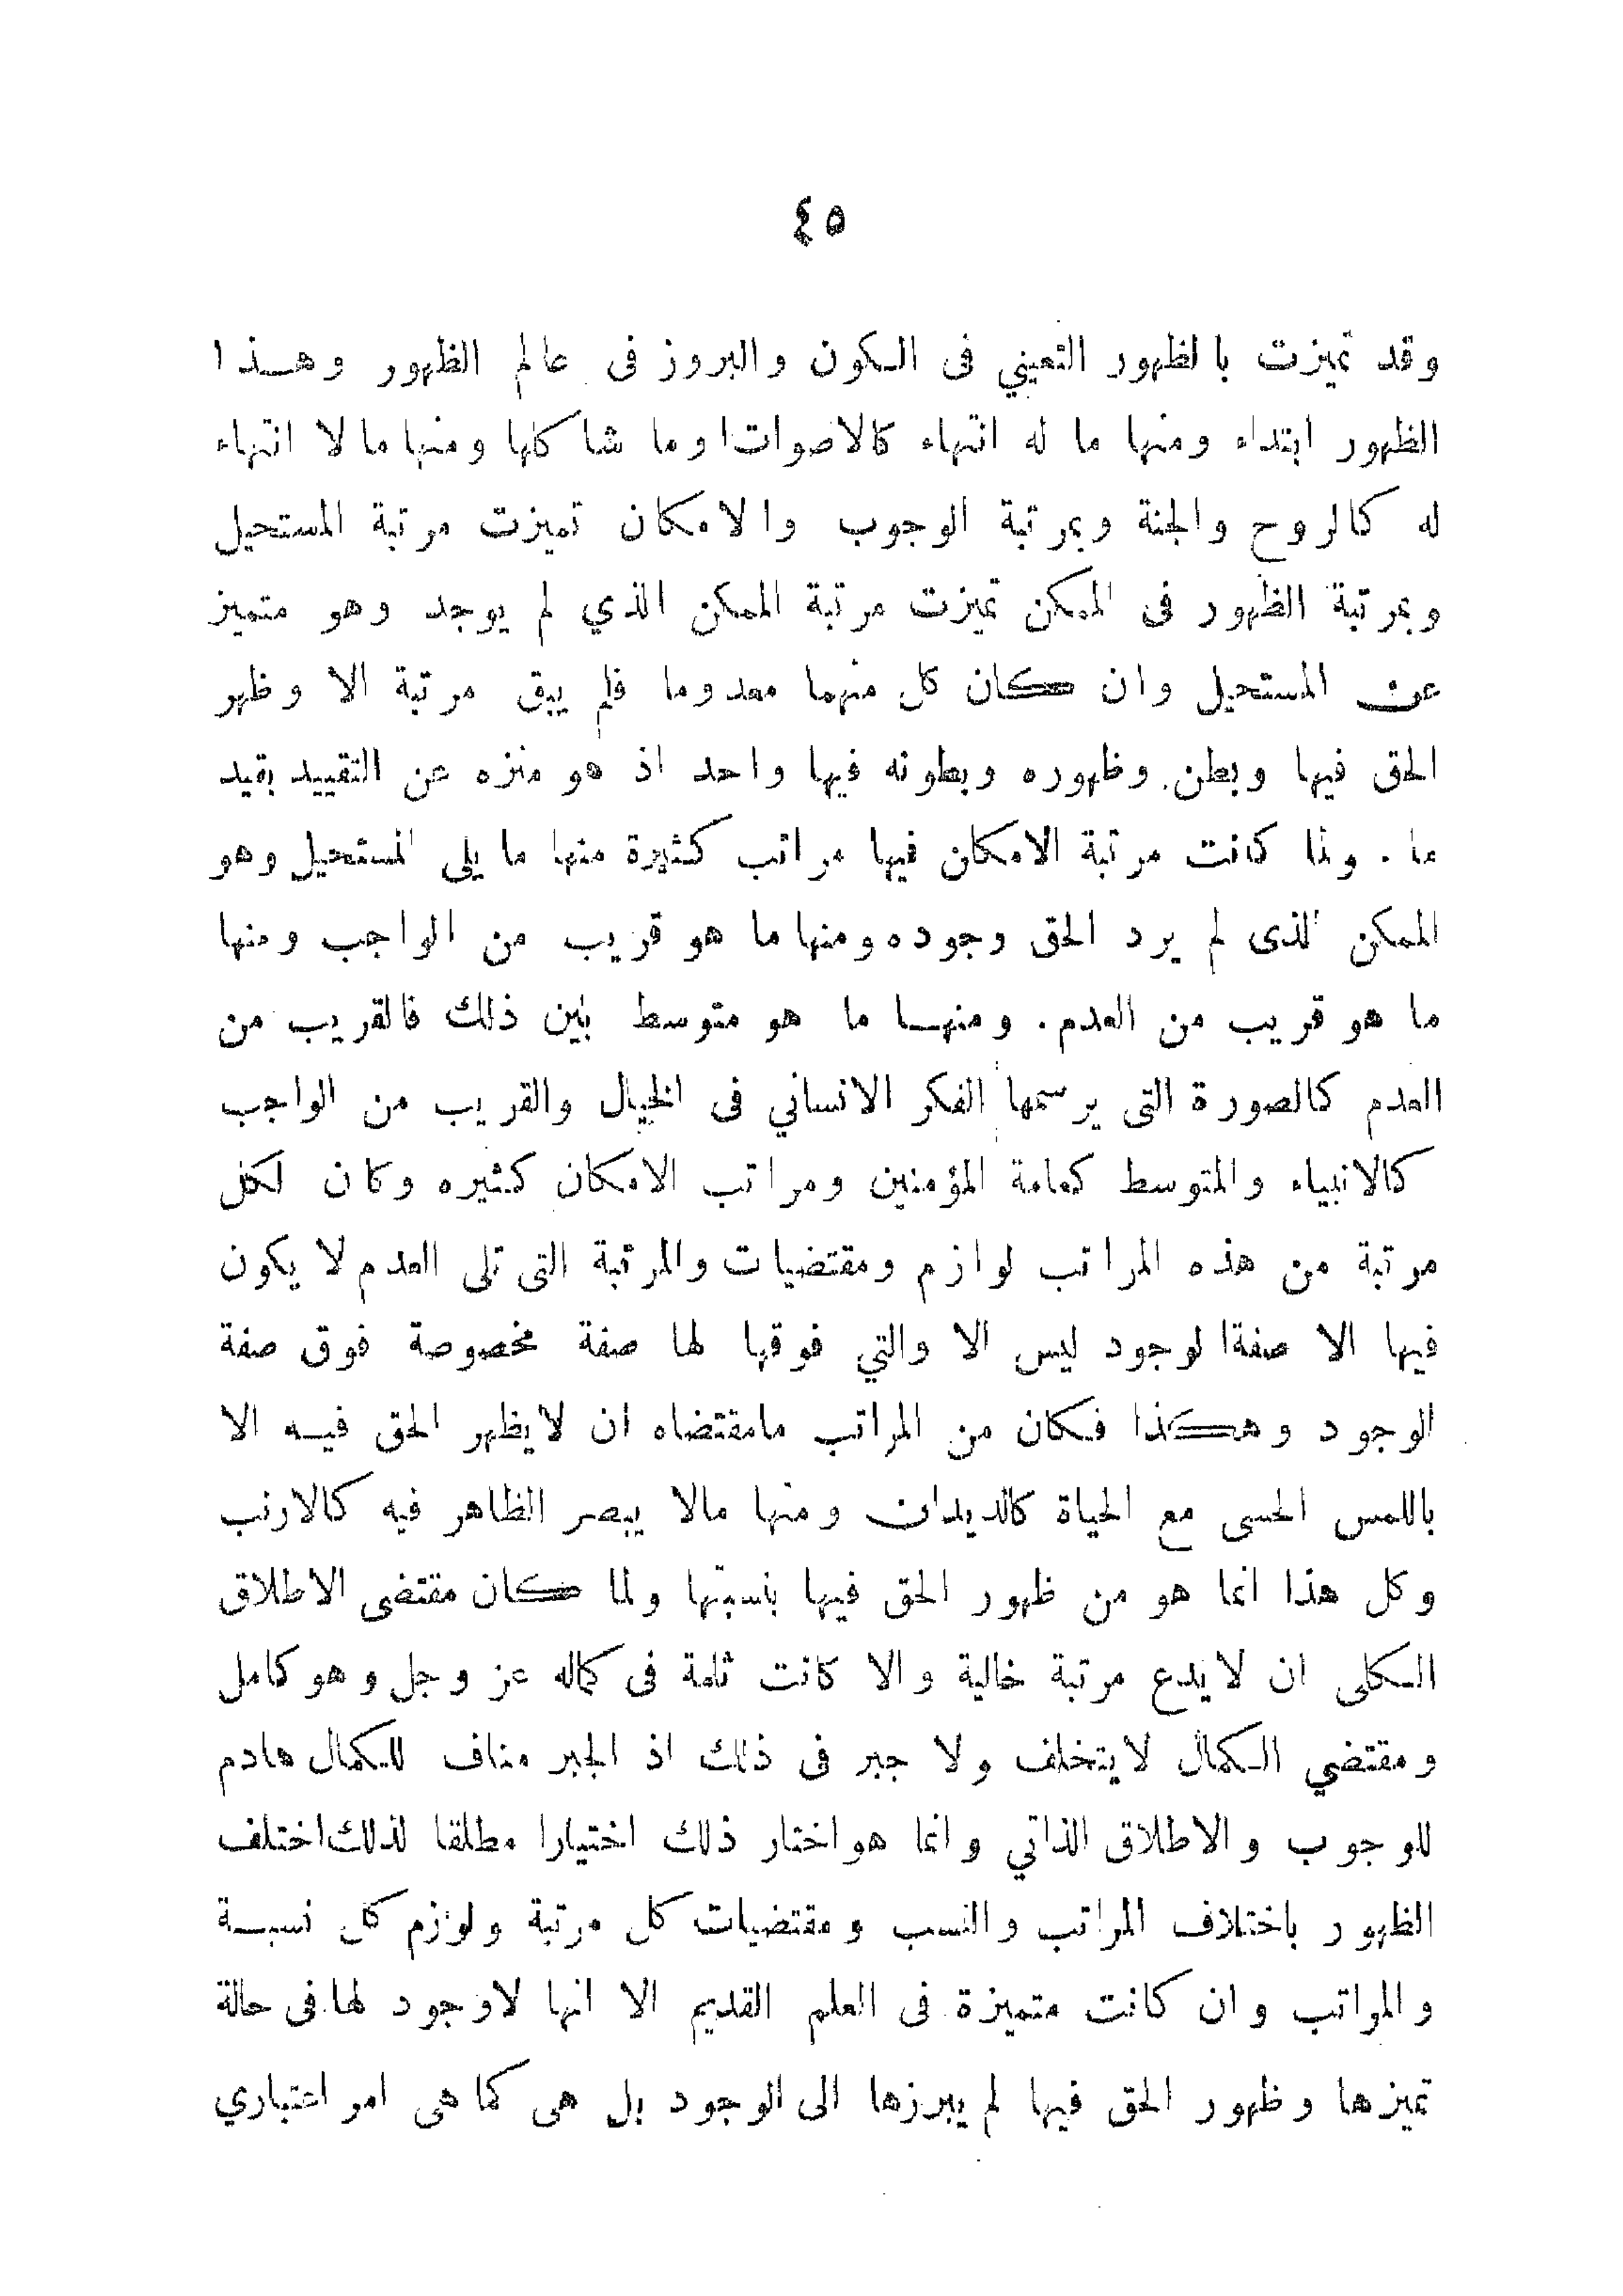 ٤٥
وقد تميزت بالظهور التعيني فى الكون والبروز فى عالم الظهور وهذا
الظهور ابتداء ومنها ما له انتهاء كالاصوات وما شاكلها ومنها ما لا انتهاء
له كالروح والجنة وبمرتبة الوجوب والامكان تميزت مرتبة المستحيل
وبمرتبة الظهور فى الممكن تميزت مرتبة الممكن الذي لم يوجد وهو متميز
عن المستحيل وان كان كل منهما معدوما فلم يبق مرتبة الا وظهر
الحق فيها وبطن. وظهوره وبطونه فيها واحد اذ هو منزه عن التقييد بقيد
ما . ولما كانت مرتبة الامكان فيها مراتب كثيرة منها ما يلى المستحيل وهو
الممكن الذى لم يرد الحق وجوده ومنها ما هو قريب من الواجب ومنها
ما هو قريب من العدم. ومنها ما هو متوسط بين ذلك فالقريب من
العدم كالصورة التى يرسمها الفكر الانساني فى الخيال والقريب من الواجب
كالانبياء والمتوسط كعامة المؤمنين ومراتب الامكان كثيره وكان لكل
مرتبة من هذه المراتب لوازم ومقتضيات والمرتبة التى تلى العدم لا يكون
فيها الا صفة الوجود ليس الا والتي فوقها لها صفة مخصوصة فوق صفة
الوجود وهكذا فكان من المراتب مامقتضاه ان لايظهر الحق فيه الا
باللمس الحسى مع الحياة كالديدان ومنها مالا يبصر الظاهر فيه كالارنب
وكل هذا انما هو من ظهور الحق فيها بنسبتها ولما كان مقتضى الاطلاق
الكلى ان لايدع مرتبة خالية والا كانت ثلمة فى كماله عز وجل وهو كامل
ومقتضي الكمال لايتخلف ولا جبر فى ذلك اذ الجبر مناف للكمال هادم
للوجوب والاطلاق الذاتي وانما هو اختار ذلك اختيارا مطلقا لذلك اختلف
الظهور باختلاف المراتب والنسب ومقتضيات كل مرتبة ولوازم كل نسبة
والمراتب وان كانت متميزة فى العلم القديم الا انها لاوجود لها فى حالة
تميزها وظهور الحق فيها لم يبرزها الى الوجود بل هى كما هى امر اعتباري